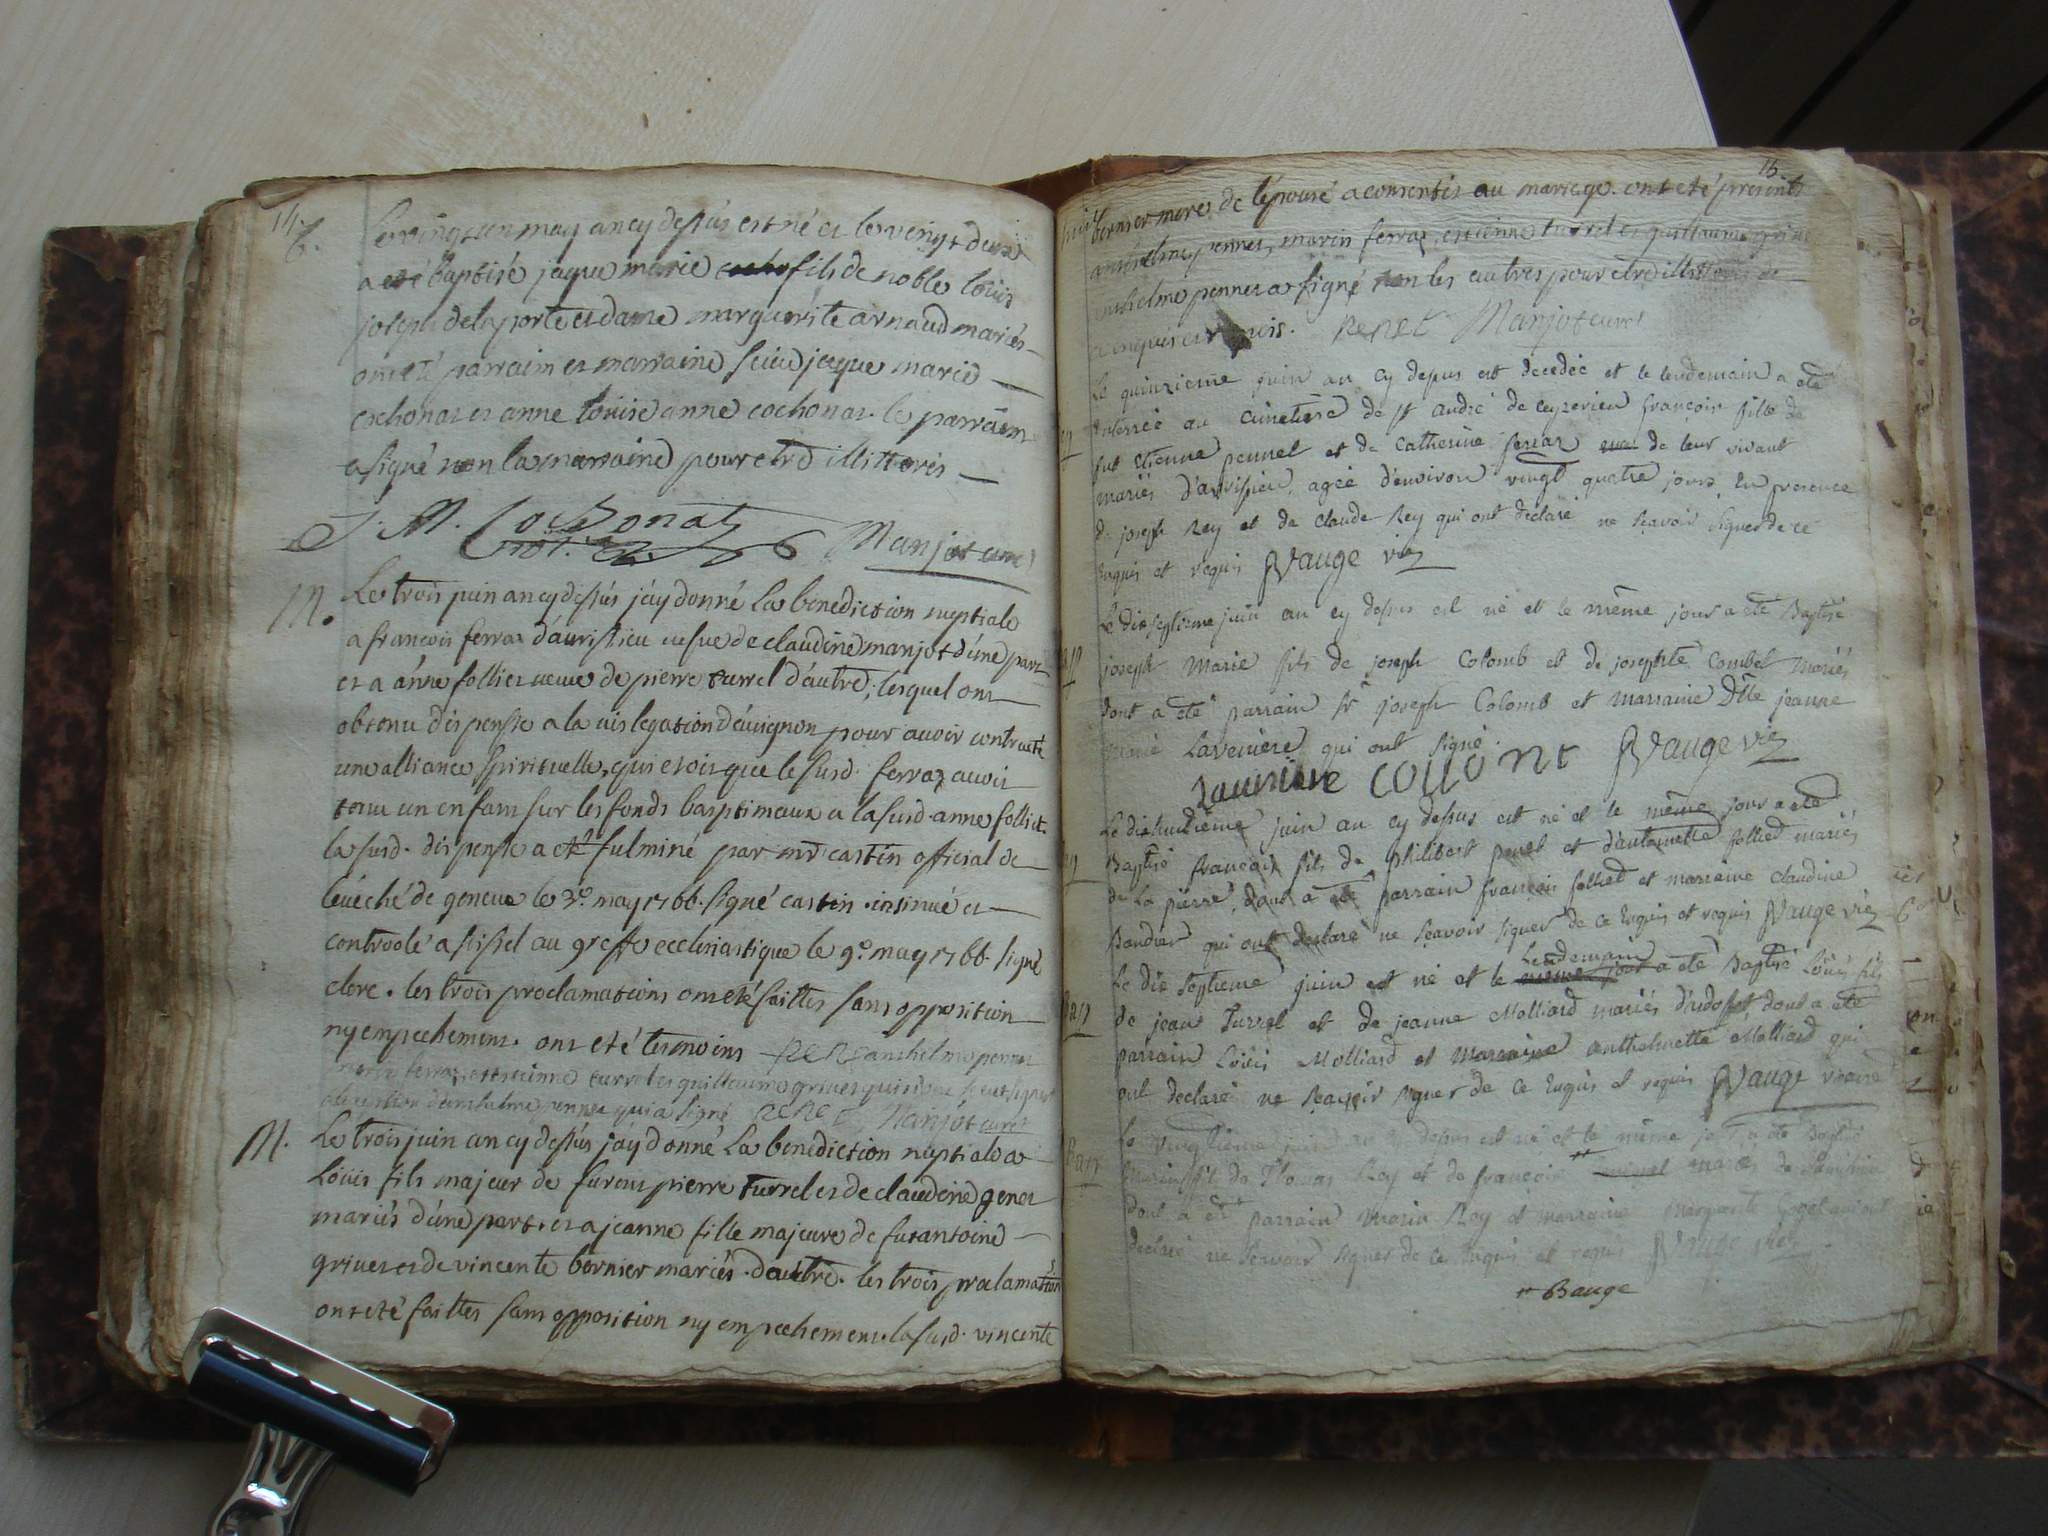 14
B. Le vingt un may an cy dessus est né et le vingt deux
a eté baptisé jaque marie fils de noble loüis
joseph delaporte et dame marguerite arnaud mariés
ont eté parrain et marraine sieur jaque marie
cochonat et anne loüise anne cochonat. le parrain
a signé non la marraine pour etre illitterés
J. M. Cochonat
Manjot curé
M. Le trois juin an cy dessus j'ay donné la benediction nuptiale
a francois ferraz d'avrissieu veufve de claudine manjot d'une part
et a anne folliet veuve de pierre turrel d'autre, lesquel ont
obtenu dispense a la vis legation d'avignon pour avoir contracté
une alliance spirituelle, qui etoit que le susd. ferraz avoit
tenu un enfant sur les fonds baptimaux a la susd. anne folliet.
la susd. dispense a eté fulminé par mr castin official de
levéché de geneve le 3e. may 1766. signé castin. insinué et
controolé a seissel au greffe ecclesiastique le 9e. may 1766. signé
clerc. les trois proclamations ont eté faittes sans opposition
ny empechement. ont eté temoins anthelme pennet
ferraz, estienne turrel et guillaume grivet qui
a l'exception d'anthelme pennet qui a signé PeNet Manjot curé
M. Le trois juin an cy dessus j'ay donné La benediction nuptiale a
Loüis fils majeur de furent pierre turrel et de claudine genet
mariés d'une part. et a jeanne fille majeure de fut antoine
grivet et de vincente bernier mariés. d'autre. les trois proclamations
ont eté faittes sans opposition ny empechement. la susd. vincente
15
bernier mere de l'épouse a consentis au mariage. ont eté présents
anthelme pennet, marin ferraz, estienne turrel et guillaume grivet
anthelme pennet a signé non les autres pour etre illitterés de
ce enquis et requis. PeNet Manjot curé
Le quinzieme juin an cy depus est decedée et le lendemain a eté
enterrée au cimetiere de st andré de ceyzerieu françoise fille de
fut Etienne pennet et de Catherine ferraz de leur vivant
mariés d'avrissieu, agée d'environ vingt quatre jours, En presence
de joseph Rey et de Claude Rey qui ont declaré ne sçavoir signer de ce
Enquis et requis Vauge vic
Le dixseptieme juin an cy depus est né et le même jour a eté Baptisé
joseph Marie fils de joseph Colomb et de josephte Combet Mariés
dont a été parrain Sr joseph Colomb et marraine Dlle jeanne
Laveniere qui ont signé.
Laveniere COLLONT Vauge vic
Le dixhuitième juin an cy dessus est né et le même jour a eté
Baptisé francois fils de philibert penet et d'antoinette folliet mariés
de La pierre, dont a eté parrain francois folliet et marraine Claudine
Bandier qui ont declaré ne sçavoir signer de ce Enquis et requis Vauge vic
Lendemain
Le dix septieme juin est né et le même jour a eté Baptisé Loüis fils
de jean Turrel et de jeanne Molliard mariés dont a eté
parrain Loüis Molliard et Marraine anthelmette Molliard qui
ont declaré ne sçavoir signer de ce Enquis et requis Vauge vicaire
Bap. Le vingtieme juin an cy depus est né et le même jour a eté Baptisé
fils de Thomas Rey et de francoise mariés de
dont a eté parrain marin Rey et marraine marguerite
declaré ne sçavoir signer de ce Enquis et requis Vauge vic
Bauge